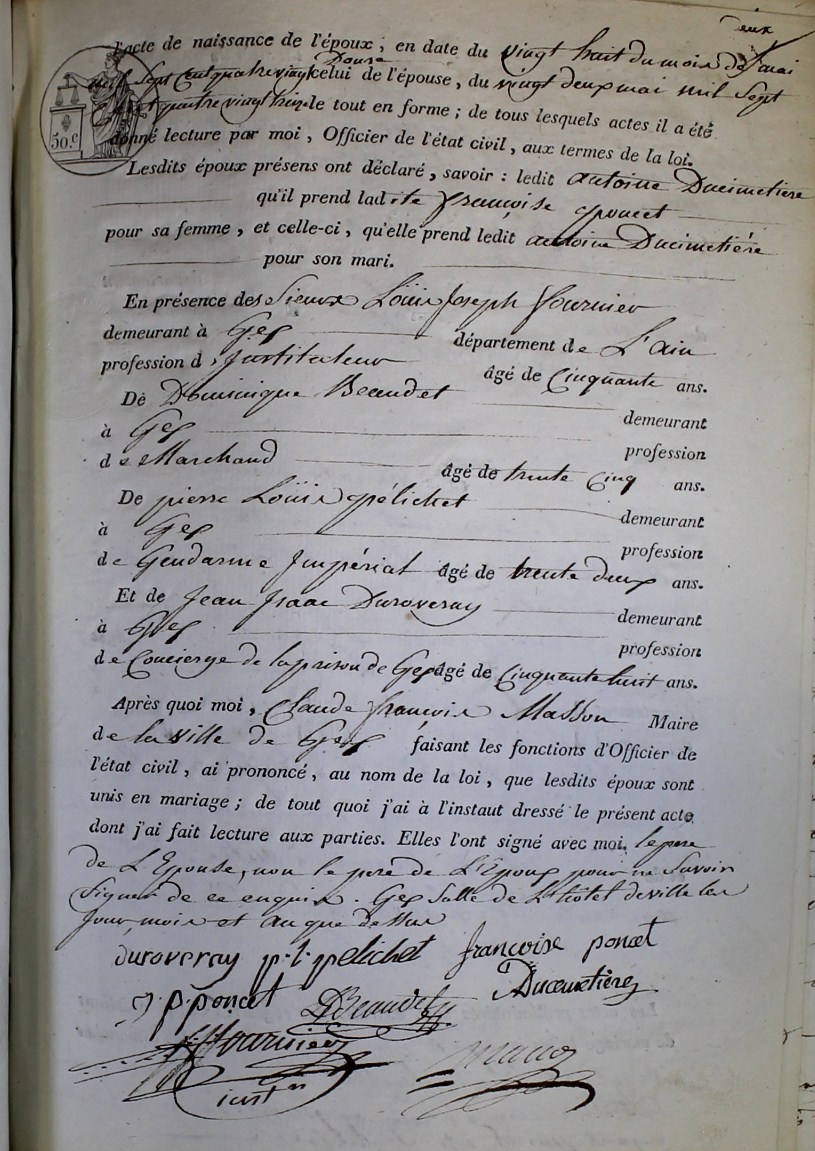 deux
l'acte de naissance de l'époux, en date du vingt huit du mois de mai
mil Sept Cent quatre vingt Douse celui de l'épouse, du vingt deux mai mil Sept
Cent quatre vingt treize le tout en forme; de tous lesquels actes il a été
donné lecture par moi, Officier de l'état civil, aux termes de la loi.
50.c
Lesdits époux présens ont déclaré, savoir: ledit antoine Ducimetiere
qu'il prend ladite françoise poncet
pour sa femme, et celle-ci, qu'elle prend ledit antoine Ducimetiére
pour son mari.
En présence des Sieurs Loüis Joseph fournier
demeurant à Gex département de L'ain
profession d'Instituteur âgé de Cinquante ans.
De Dominique Beaudet demeurant
à Gex profession
de Marchand âgé de trente Cinq ans.
De pierre Loüis pélichet demeurant
à Gex profession
de Gendarme Impérial âgé de trente deux ans.
Et de Jean Isaac Duroveray demeurant
à Gex profession
de Concierge de la prison de Gex âgé de Cinquante huit ans.
Après quoi moi, Claude françois Masson Maire
de la ville de Gex faisant les fonctions d'Officier de
l'état civil, ai prononcé, au nom de la loi, que lesdits époux sont
unis en mariage; de tout quoi j'ai à l'instaut dressé le présent acte
dont j'ai fait lecture aux parties. Elles l'ont signé avec moi, le pere
de L'Epouse, non le pere de L'Epoux pour ne Savoir
Signer de ce enquis. Gex Salle de L'hôtel de ville les
Jour, mois et an que dessus
duroveray p. l. pelichet françoise poncet
J. p. poncet D Beaudet Ducimetiere
fournier
inst.r